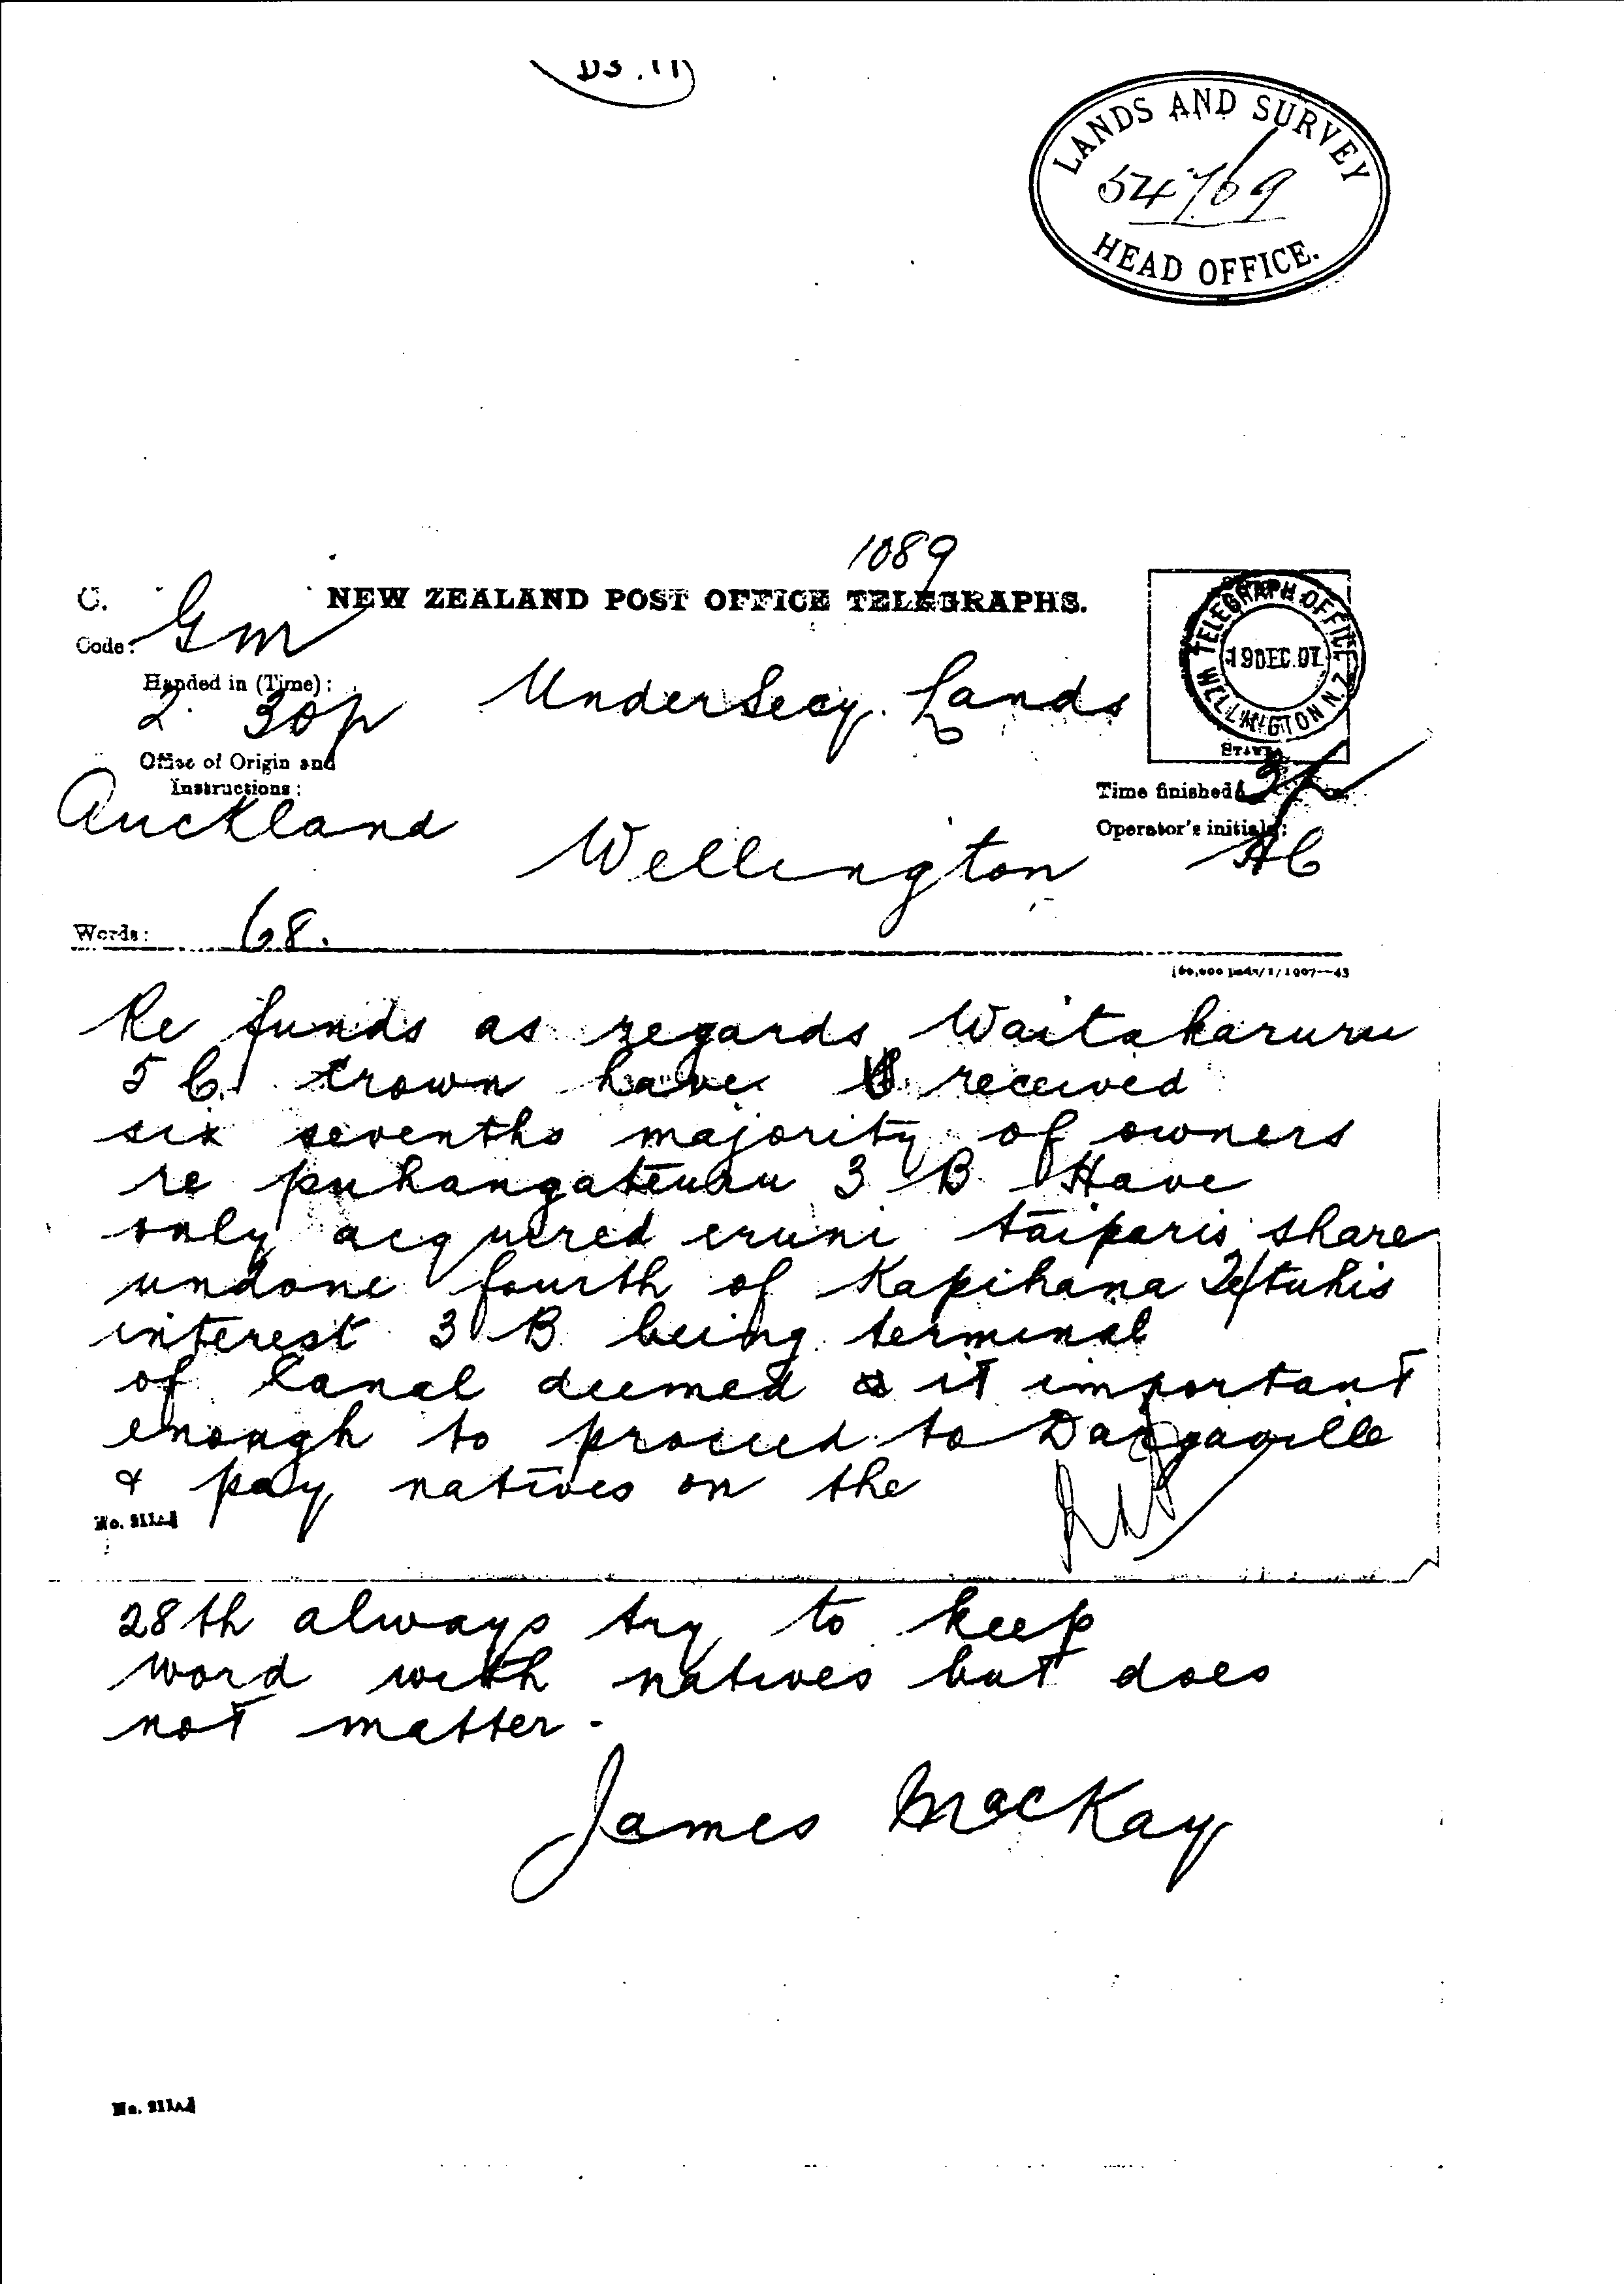 D3.11
LANDS AND SURVEY
54769
HEAD OFFICE.
1089
C.
NEW ZEALAND POST OFFICE TELEGRAPHS.
Code: Gm
Handed in (Time):
2. 30p
UnderSecy. Lands
TELEGRAPH OFFICE
19 DEC. 07
WELLINGTON N.Z.
STAMP
Office of Origin and
Instructions:
Auckland
Time finished: 3p
Operator's initials:
AC
Wellington
Words: 68.
[60,000 pads/1/1907—43
Re funds as regards Waitakaruru
5 C. Crown have received
six sevenths majority of owners
re puhangateuru 3 B Have
only acquired eruni taiparis share
undone fourth of Kapihana Te tuhis
interest 3 B being terminal
of Canal deemed it important
enough to proceed to Dargaville
& pay natives on the
No. 211A.
28th always try to keep
word with natives but does
not matter.
James MacKay
No. 211A.